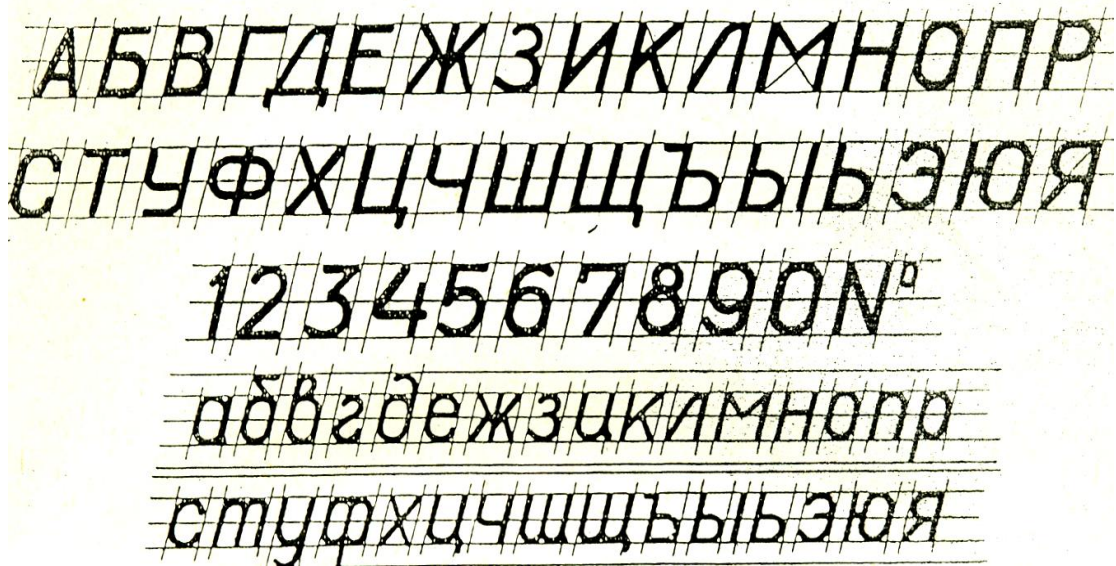 АБВГДЕЖЗИКЛМНОПР
СТУФХЦЧШЩЪЫЬЭЮЯ
1234567890№
абвгдежзиклмнопр
стуфхцчшщъыьэюя